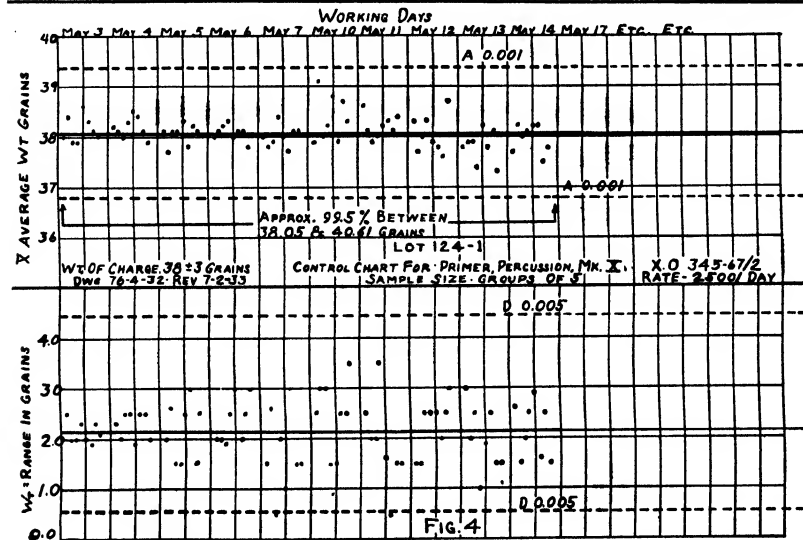 WORKING DAYS
MAY 3 MAY 4 MAY 5 MAY 6 MAY 7 MAY 10 MAY 11 MAY 12 MAY 13 MAY 14 MAY 17 ETC. ETC
40
A 0.001
39
X̄ AVERAGE WT GRAINS
38
37
A 0.001
APPROX. 99.5% BETWEEN
38.05 & 40.61 GRAINS
36
LOT 124-1
WT. OF CHARGE, 38 ±3 GRAINS
DWG 76-4-32. REV 7-2-33
CONTROL CHART FOR PRIMER, PERCUSSION, MK. X.
SAMPLE SIZE. GROUPS OF 5
X.O 345-67/2
RATE - 2500/ DAY
D 0.005
4.0
3.0
RANGE IN GRAINS
2.0
1.0
D 0.005
0.0
FIG. 4